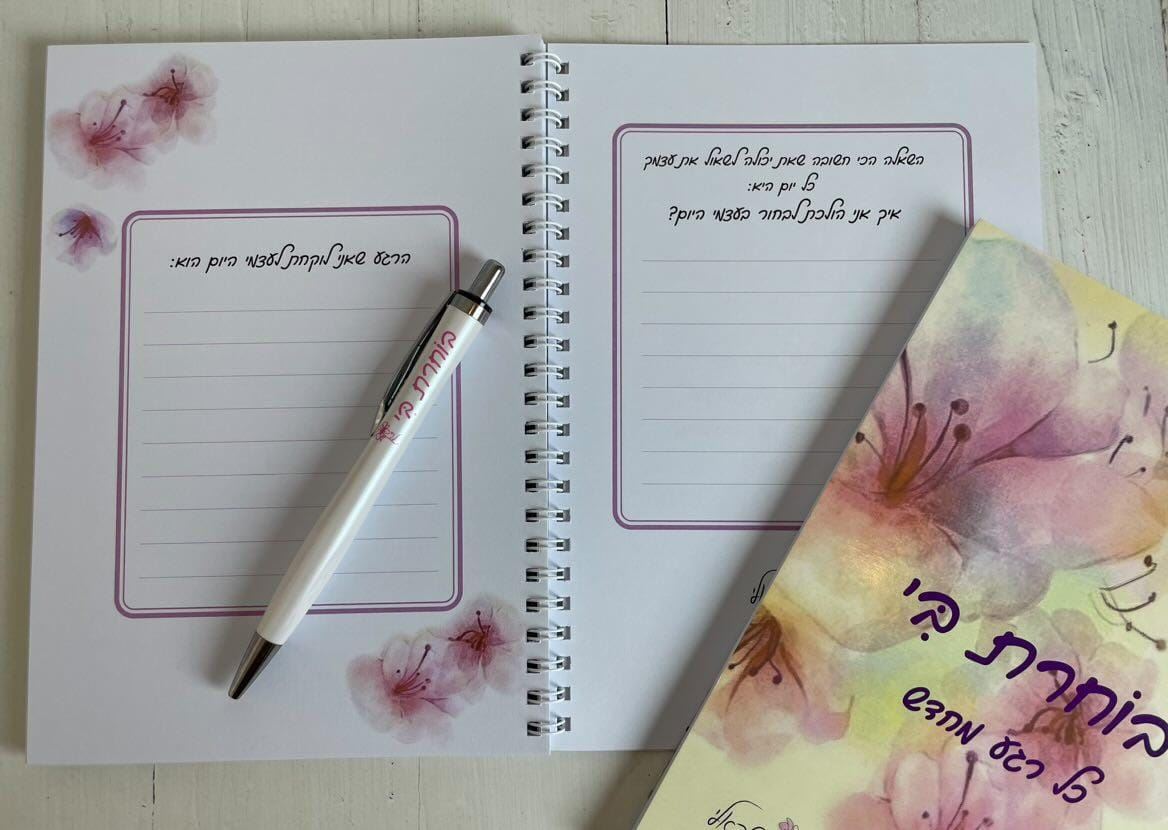 השאלה הכי חשובה שאת יכולה לשאול את עצמך
כל יום היא:
איך אני הולכת לבחור בעצמי היום?
הרגע שאני לוקחת לעצמי היום הוא:
בוחרת בי
בּוֹחֶרֶת בִּי
כל רגע מחדש